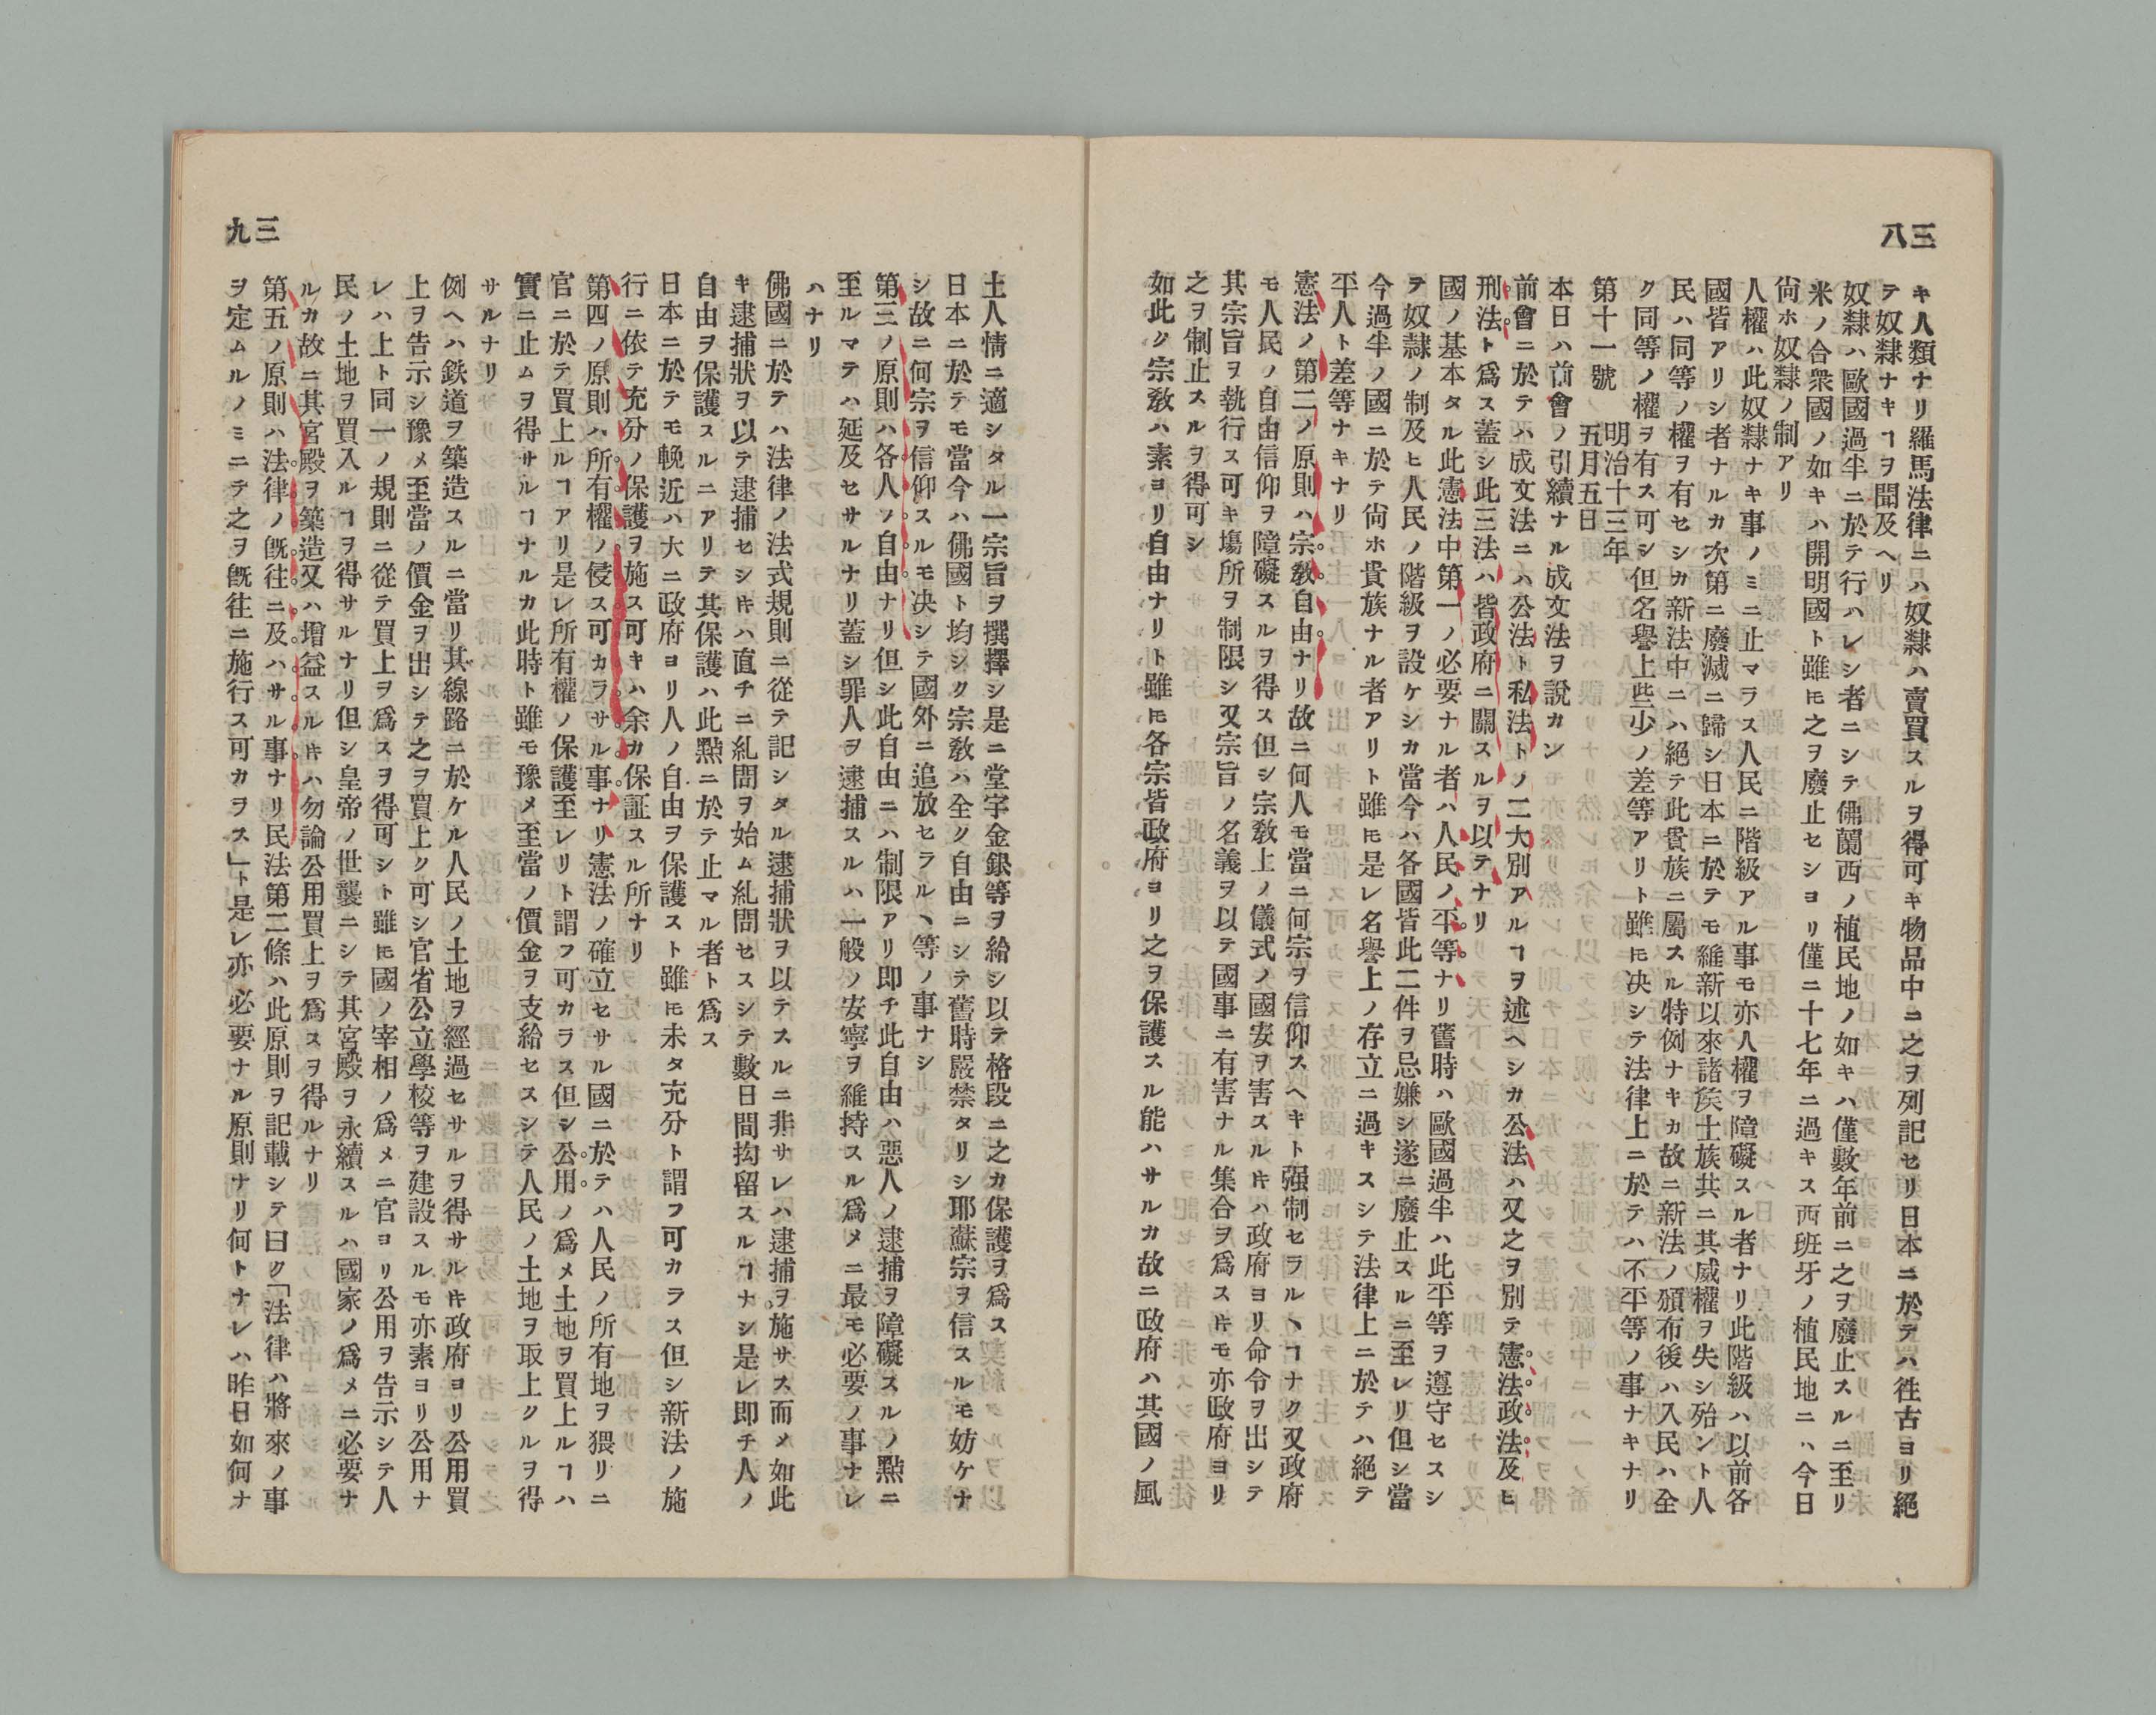 三八
キ人類ナリ羅馬法律ニハ奴隷ハ賣買スルヲ得可キ物品中ニ之ヲ列記セリ日本ニ於テハ徃古ヨリ絕
テ奴隷ナキヿヲ聞及ヘリ
奴隷ハ歐國過半ニ於テ行ハレシ者ニシテ佛蘭西ノ植民地ノ如キハ僅數年前ニ之ヲ廢止スルニ至リ
米ノ合衆國ノ如キハ開明國ト雖𪜈之ヲ廢止セシヨリ僅ニ十七年ニ過キス西班牙ノ植民地ニハ今日
尙ホ奴隷ノ制アリ
人權ハ此奴隷ナキ事ノミニ止マラス人民ニ階級アル事モ亦人權ヲ障礙スル者ナリ此階級ハ以前各
國皆アリシ者ナルカ次第ニ廢滅ニ歸シ日本ニ於テモ維新以來諸矦士族共ニ其威權ヲ失シ殆ント人
民ハ同等ノ權ヲ有セシカ新法中ニハ絕テ此貴族ニ屬スル特例ナキカ故ニ新法ノ頒布後ハ人民ハ全
ク同等ノ權ヲ有ス可シ但名譽上些少ノ差等アリト雖𪜈决シテ法律上ニ於テハ不平等ノ事ナキナリ
第十一號
明治十三年
五月五日
本日ハ前會ノ引續ナル成文法ヲ說カン
前會ニ於テハ成文法ニハ公法ト私法トノ二大別アルヿヲ述ヘシカ公法ハ又之ヲ別テ憲法政法及ヒ
刑法ト爲ス蓋シ此三法ハ皆政府ニ關スルヲ以テナリ
國ノ基本タル此憲法中第一ノ必要ナル者ハ人民ノ平等ナリ舊時ハ歐國過半ハ此平等ヲ遵守セスシ
テ奴隷ノ制及ヒ人民ノ階級ヲ設ケシカ當今ハ各國皆此二件ヲ忌嫌シ遂ニ廢止スルニ至レリ但シ當
今過半ノ國ニ於テ尙ホ貴族ナル者アリト雖𪜈是レ名譽上ノ存立ニ過キスシテ法律上ニ於テハ絕テ
平人ト差等ナキナリ
憲法ノ第二ノ原則ハ宗敎自由ナリ故ニ何人モ當ニ何宗ヲ信仰スヘキト强制セラルヽヿナク又政府
モ人民ノ自由信仰ヲ障礙スルヲ得ス但シ宗敎上ノ儀式ノ國安ヲ害スル𪜈ハ政府ヨリ命令ヲ出シテ
其宗旨ヲ執行ス可キ塲所ヲ制限シ又宗旨ノ名義ヲ以テ國事ニ有害ナル集合ヲ爲ス𪜈モ亦政府ヨリ
之ヲ制止スルヲ得可シ
如此ク宗敎ハ素ヨリ自由ナリト雖𪜈各宗皆政府ヨリ之ヲ保護スル能ハサルカ故ニ政府ハ其國ノ風
三九
土人情ニ適シタル一宗旨ヲ撰擇シ是ニ堂宇金銀等ヲ給シ以テ格段ニ之カ保護ヲ爲ス
日本ニ於テモ當今ハ佛國ト均シク宗敎ハ全ク自由ニシテ舊時嚴禁タリシ耶蘇宗ヲ信スルモ妨ケナ
シ故ニ何宗ヲ信仰スルモ决シテ國外ニ追放セラルヽ等ノ事ナシ
第三ノ原則ハ各人ノ自由ナリ但シ此自由ニハ制限アリ即チ此自由ハ惡人ノ逮捕ヲ障礙スルノ點ニ
至ルマテハ延及セサルナリ蓋シ罪人ヲ逮捕スルハ一般ノ安寧ヲ維持スル爲メニ最モ必要ノ事ナレ
ハナリ
佛國ニ於テハ法律ノ法式規則ニ從テ記シタル逮捕狀ヲ以テスルニ非サレハ逮捕ヲ施サス而メ如此
キ逮捕狀ヲ以テ逮捕セシ𪜈ハ直チニ糺問ヲ始ム糺問セスシテ數日間拘留スルヿナシ是レ即チ人ノ
自由ヲ保護スルニアリテ其保護ハ此點ニ於テ止マル者ト爲ス
日本ニ於テモ輓近ハ大ニ政府ヨリ人ノ自由ヲ保護スト雖𪜈未タ充分ト謂フ可カラス但シ新法ノ施
行ニ依テ充分ノ保護ヲ施ス可キハ余カ保証スル所ナリ
第四ノ原則ハ所有權ノ侵ス可カラサル事ナリ憲法ノ確立セサル國ニ於テハ人民ノ所有地ヲ猥リニ
官ニ於テ買上ルヿアリ是レ所有權ノ保護至レリト謂フ可カラス但シ公用ノ爲メ土地ヲ買上ルヿハ
實ニ止ムヲ得サルヿナルカ此時ト雖モ豫メ至當ノ價金ヲ支給セスシテ人民ノ土地ヲ取上クルヲ得
サルナリ
例ヘハ鉄道ヲ築造スルニ當リ其線路ニ於ケル人民ノ土地ヲ經過セサルヲ得サル𪜈政府ヨリ公用買
上ヲ告示シ豫メ至當ノ價金ヲ出シテ之ヲ買上ク可シ官省公立學校等ヲ建設スルモ亦素ヨリ公用ナ
レハ上ト同一ノ規則ニ從テ買上ヲ爲スヲ得可シト雖𪜈國ノ宰相ノ爲メニ官ヨリ公用ヲ告示シテ人
民ノ土地ヲ買入ルヿヲ得サルナリ但シ皇帝ノ世襲ニシテ其宮殿ヲ永續スルハ國家ノ爲メニ必要ナ
ルカ故ニ其宮殿ヲ築造又ハ增益スル𪜈ハ勿論公用買上ヲ爲スヲ得ルナリ
第五ノ原則ハ法律ノ旣往ニ及ハサル事ナリ民法第二條ハ此原則ヲ記載シテ曰ク「法律ハ將來ノ事
ヲ定ムルノミニテ之ヲ旣往ニ施行ス可カヲス」ト是レ亦必要ナル原則ナリ何トナレハ昨日如何ナ